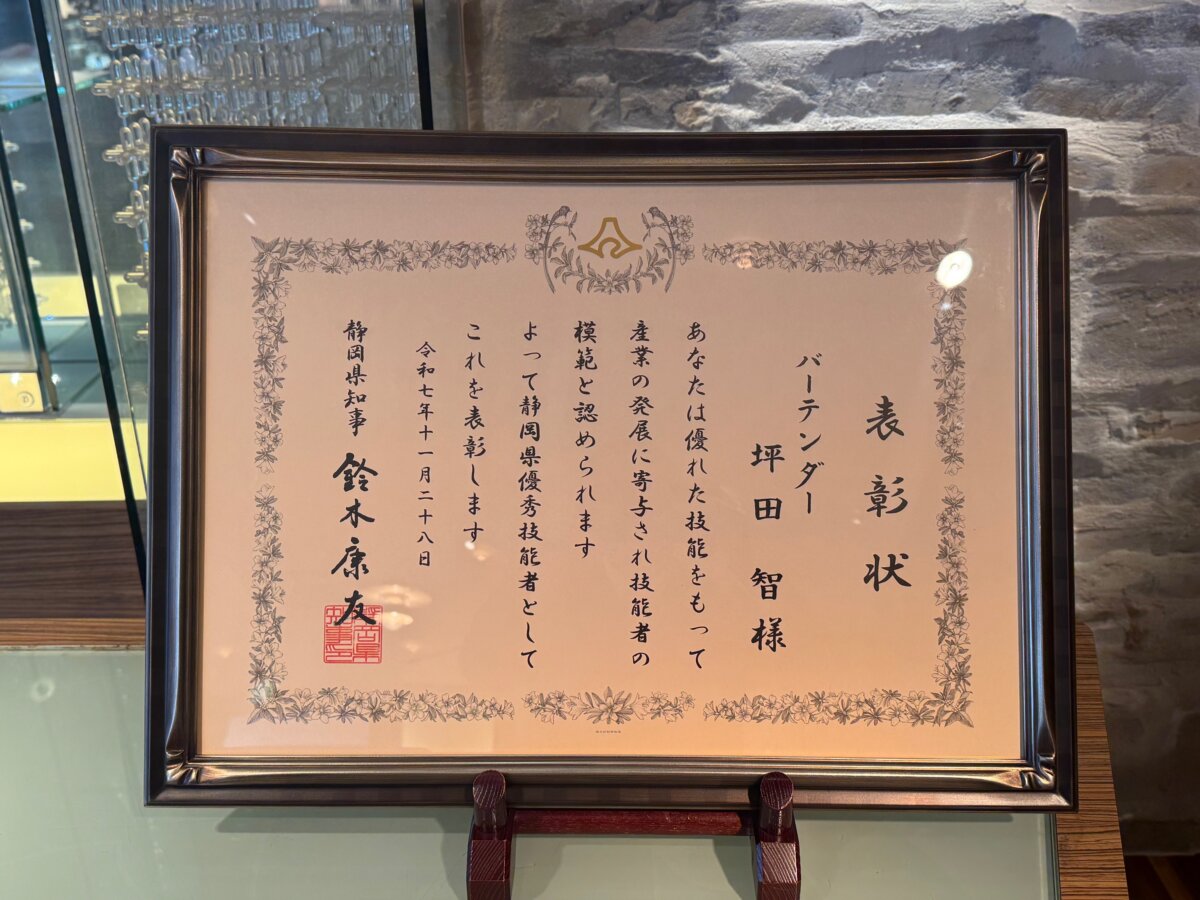 表彰状
バーテンダー
坪田 智様
あなたは優れた技能をもって
産業の発展に寄与され技能者の
模範と認められます
よって静岡県優秀技能者として
これを表彰します
令和七年十一月二十八日
静岡県知事 鈴木康友